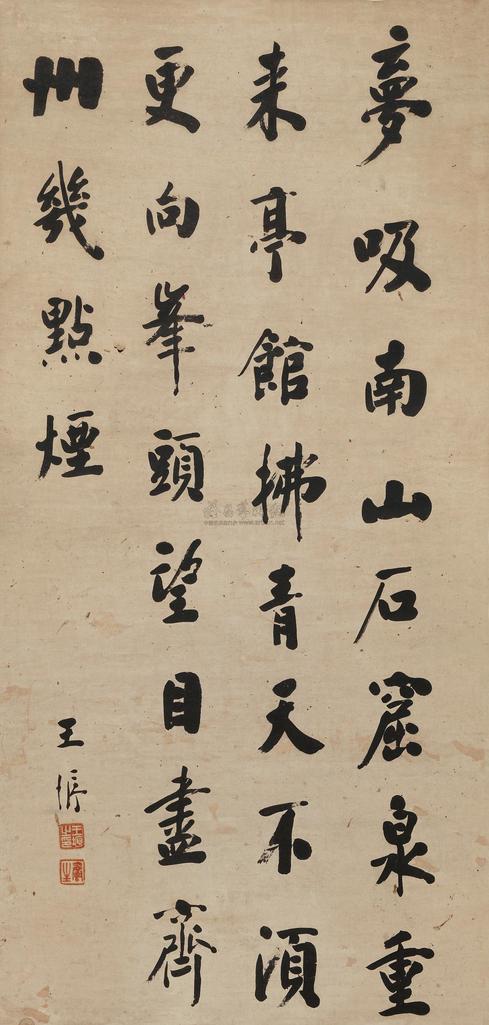 夢吸南山石窟泉重
来亭館拂青天不須
更向峯頭望目盡齊
州幾點煙
王